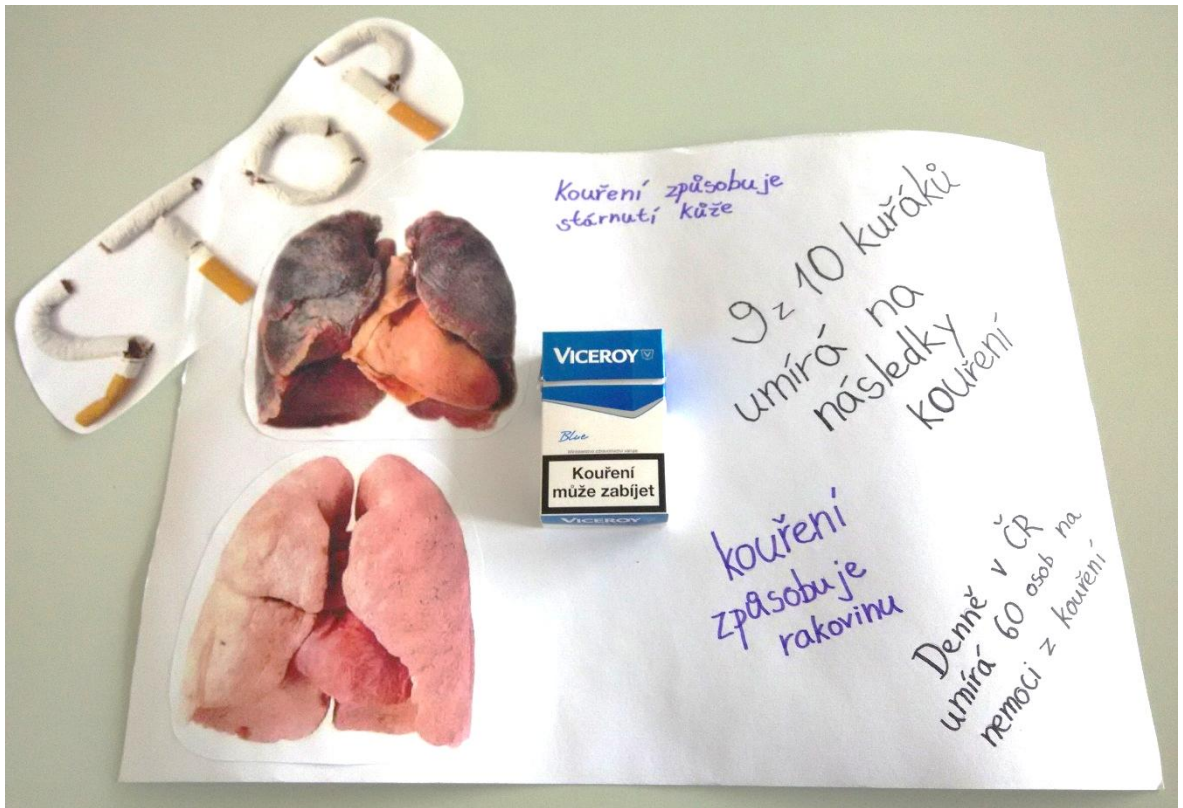 STOP
Kouření způsobuje
stárnutí kůže
9 z 10 kuřáků
umírá na
následky
kouření
VICEROY
Blue
Kouření
může zabíjet
VICEROY
kouření
způsobuje
rakovinu
Denně v ČR
umírá 60 osob na
nemoci z kouření